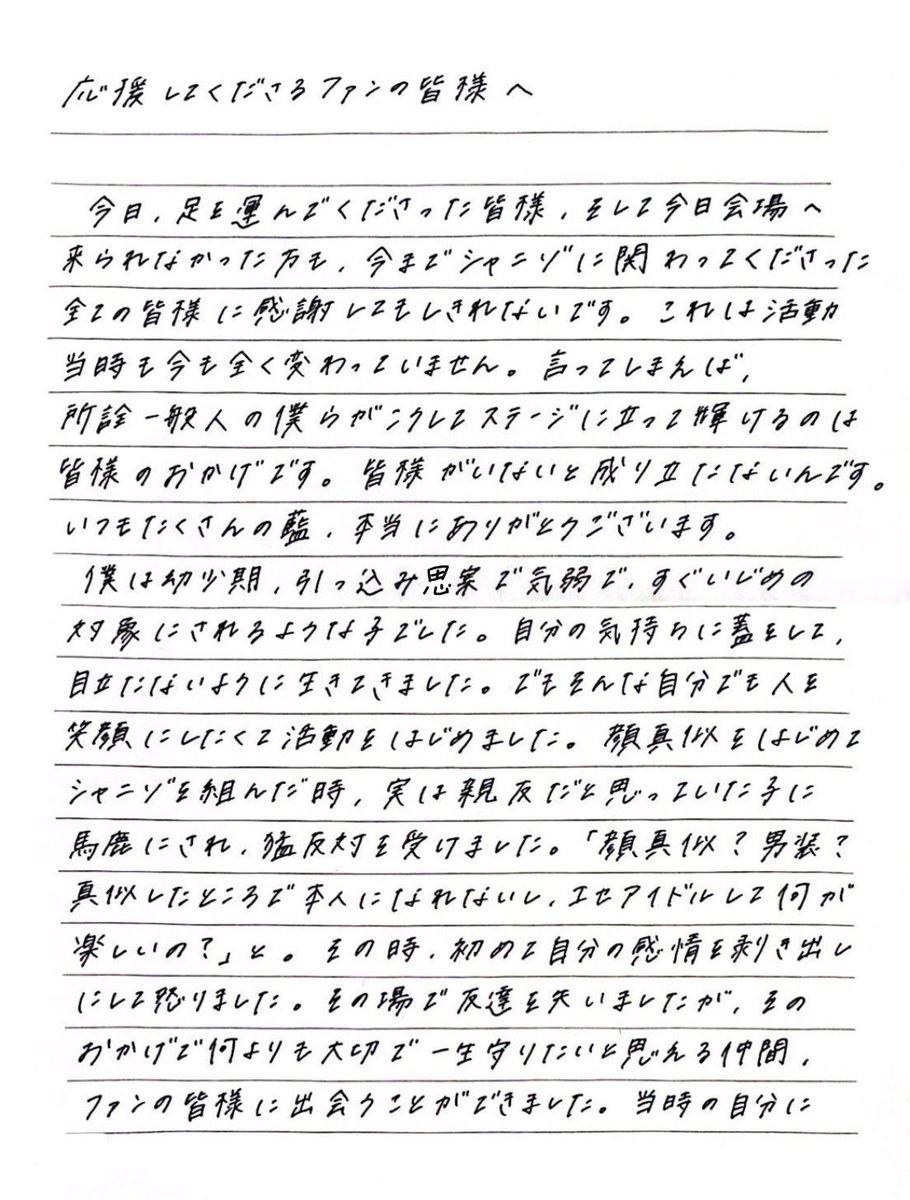 応援してくださるファンの皆様へ
今日、足を運んでくださった皆様、そして今日会場へ
来られなかった方も、今までシャニゾに関わってくださった
全ての皆様に感謝してもしきれないです。これは活動
当時も今も全く変わっていません。言ってしまえば、
所詮一般人の僕らがこうしてステージに立って輝けるのは
皆様のおかげです。皆様がいないと成り立たないんです。
いつもたくさんの藍、本当にありがとうございます。
僕は幼少期、引っ込み思案で気弱で、すぐいじめの
対象にされるような子でした。自分の気持ちに蓋をして、
目立たないように生きてきました。でもそんな自分でも人を
笑顔にしたくて活動をはじめました。顔真似をはじめて
シャニゾを組んだ時、実は親友だと思っていた子に
馬鹿にされ、猛反対を受けました。「顔真似？男装？
真似したところで本人になれないし、エセアイドルして何が
楽しいの？」と。その時、初めて自分の感情を剥き出し
にして怒りました。その場で友達を失いましたが、その
おかげで何よりも大切で一生守りたいと思える仲間、
ファンの皆様に出会うことができました。当時の自分に